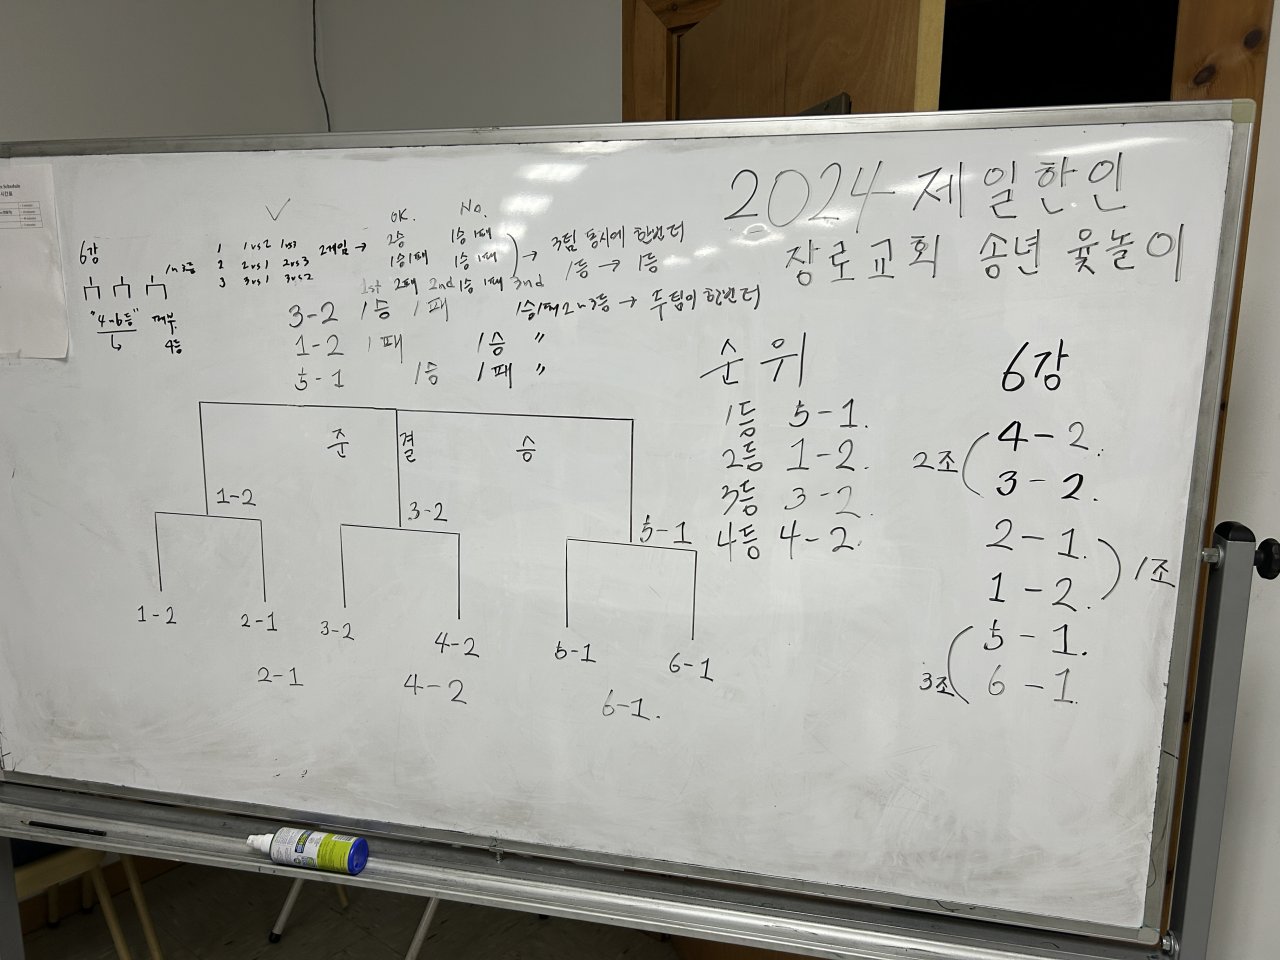 2024 제일한인
장로교회 송년 윷놀이
6강
1~3등
"4~6등" 패부
4등
1 1vs2 1vs3
2 2vs1 2vs3
3 3vs1 3vs2
2게임 →
OK. No.
2승 1승 1패
1승1패 1승 1패
2패 1승 1패
1st 2nd 3nd
→ 3팀 동시에 한번더
1등 → 1등
1승1패 2~3등 → 두팀이 한번더
3-2 1승 1패
1-2 1패 1승 "
5-1 1승 1패 "
준 결 승
1-2
3-2
5-1
1-2 2-1 3-2 4-2 5-1 6-1
2-1 4-2 6-1.
순위
1등 5-1.
2등 1-2.
3등 3-2.
4등 4-2.
6강
2조
4-2.
3-2.
2-1.
1-2.
1조
5-1.
6-1.
3조
Schedule
시간표